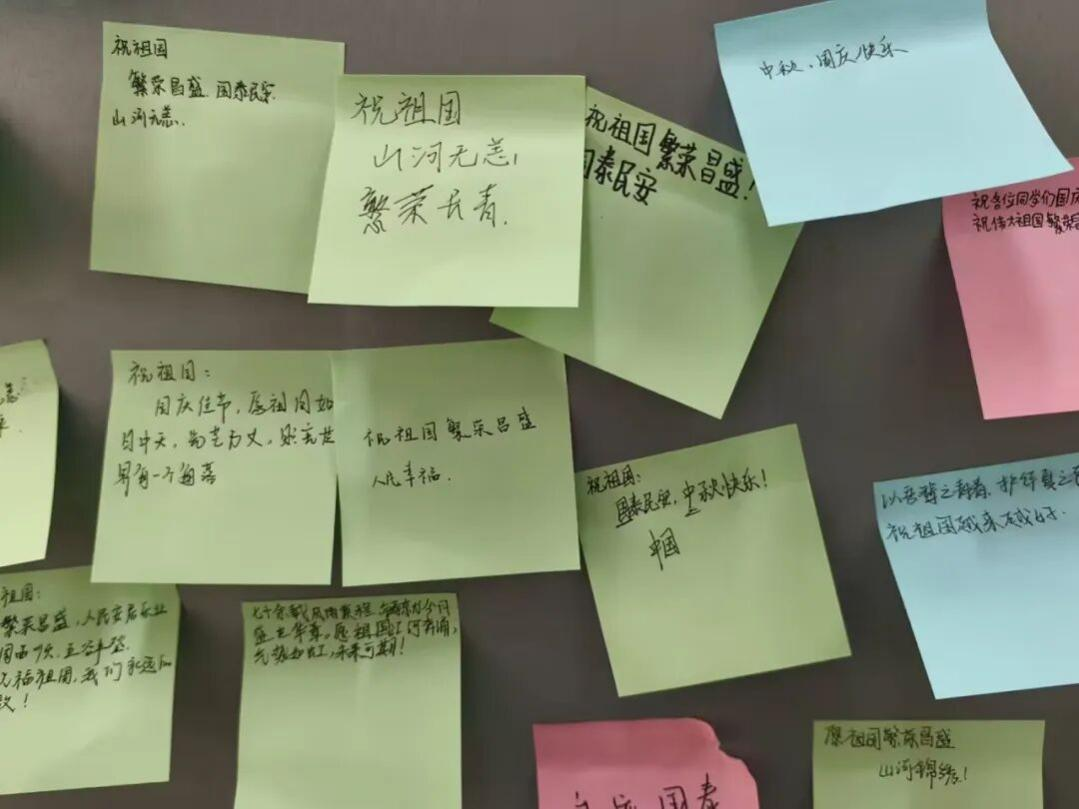 祝祖国
繁荣昌盛.国泰民安.
山河无恙.
祝祖国
山河无恙,
繁荣长青.
祝祖国繁荣昌盛!
国泰民安
中秋、国庆快乐
祝各位同学们国庆
祝伟大祖国繁荣昌
祝祖国:
国庆佳节,愿祖国如
日中天,
界每一个角落
祝祖国繁荣昌盛
人民幸福.
祝祖国:
国泰民安,中秋快乐!
中国
以吾辈之青春,护
祝祖国越来越好.
祖国:
繁荣昌盛,人民安居乐业
祝福祖国,我们永远
七十余载风雨兼程,今日
盛世华章。愿祖国江河奔涌,
气势如虹,未来可期!
国泰
愿祖国繁荣昌盛
山河锦绣!